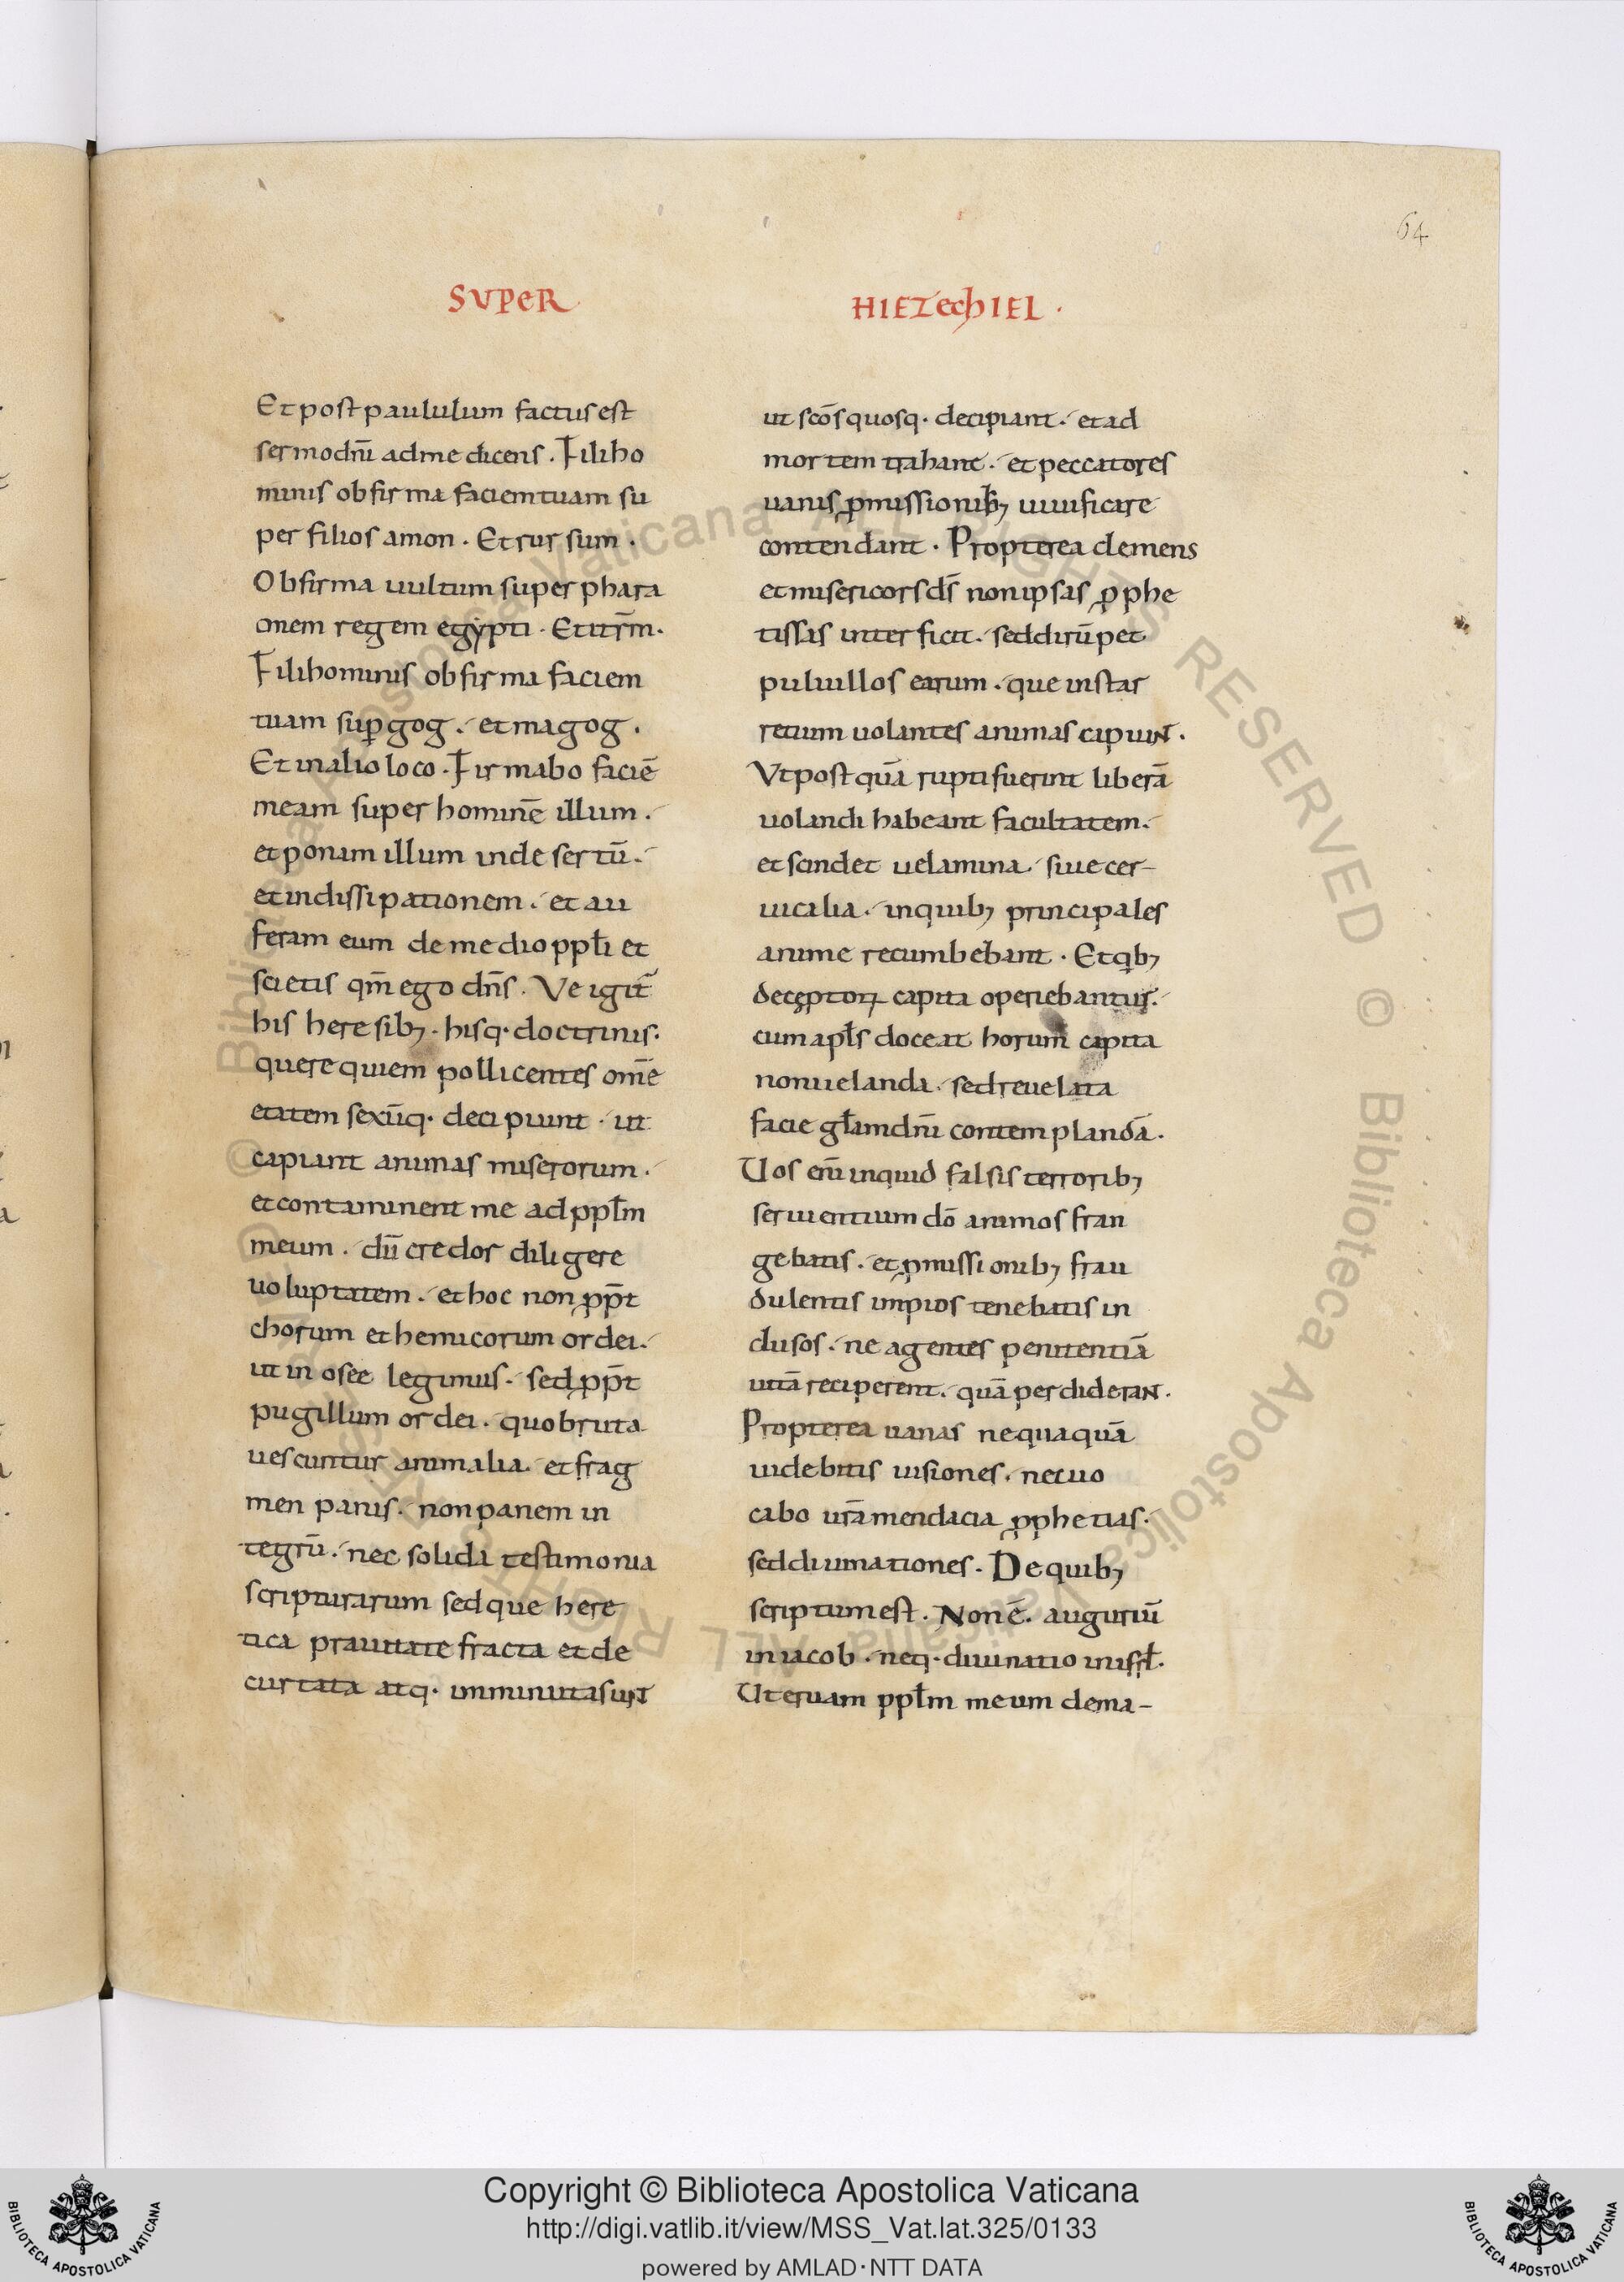 64
SUPER
HIEZechIEL ·
Et post paululum factus est
sermo dn̄i ad me dicens . Fili ho
minis obfirma faciem tuam su
per filios amon . Et rursum .
Obfirma uultum super phara
onem regem egypti . Et itr̄m .
Fili hominis obfirma faciem
tuam sup̲ gog . et magog .
Et in alio loco . Firmabo faciē
meam super hominē illum .
et ponam illum in desertū .
et in dissipationem . et au
feram eum de medio ppl̄i et
scietis qm̄ ego dn̄s . Ve igit̄
his heresib; . hisq · doctrinis .
que requiem pollicentes om̄e
etatem sexūq · decipiunt . ut
capiant animas miserorum .
et contaminent me ad ppl̄m
meum . dū credor diligere
uoluptatem . et hoc non ꝓpt̄
chorum et hemicorum ordei .
ut in osee legimus . sed ꝓpt̄
pugillum ordei . quo bruta
uescuntur animalia . et frag
men panis . non panem in
tegrū . nec solida testimonia
scripturarum sed que here
tica prauitate fracta et de
curtata atq · imminuta sunt
ut scōs quosq · decipiant . et ad
mortem trahant . et peccatores
uanis ꝓmissionib; uiuificare
contendant . Propterea clemens
et misericors ds̄ non ipsas ꝓphe
tissas interficit . sed dirūpet
puluillos earum . que instar
retium uolantes animas capiunt .
Vt postquā rupti fuerint liberā
uolandi habeant facultatem .
et scindet uelamina . siue cer-
uicalia . in quib; principales
anime recumbebant . Et qib;
deceptoꝝ capita operiebantur .
cum apl̄s doceat horum capita
non uelanda . sed reuelata
facie gl̄am dn̄i contemplandā .
Uos enī inquid falsis terrorib;
seruientium dō animos fran
gebatis . et ꝓmissionib; frau
dulentis impios tenebatis in
clusos . ne agentes penitentiā
uitā reciperent . quā perdiderant .
Propterea uanas nequaquā
uidebitis uisiones . nec uo
cabo ur̄a mendacia ꝓphetias .
sed diuinationes . De quib;
scriptum est . Non ē . auguriū
in iacob . neq · diuinatio in isrl̄ .
Ut eruam ppl̄m meum de ma-
Copyright © Biblioteca Apostolica Vaticana
http://digi.vatlib.it/view/MSS_Vat.lat.325/0133
powered by AMLAD·NTT DATA
BIBLIOTECA APOSTOLICA VATICANA
BIBLIOTECA APOSTOLICA VATICANA
© Biblioteca Apostolica Vaticana ALL RIGHTS RESERVED © Biblioteca Apostolica Vaticana ALL RIGHTS RESERVED